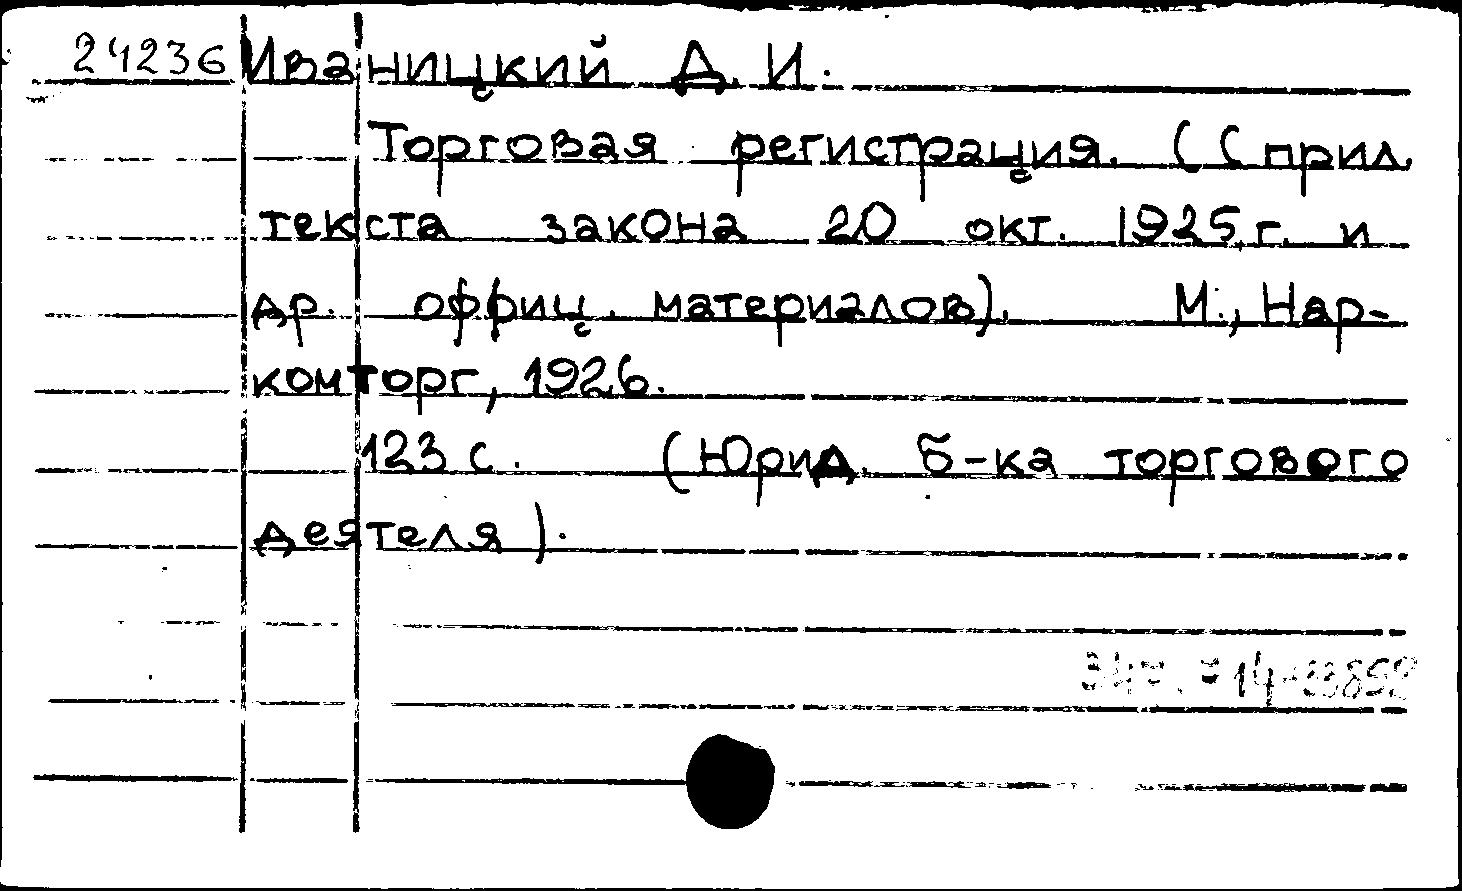 24236 Иваницкий Д. И.
Торговая регистрация. (С прил.
текста закона 20 окт. 1925 г. и
др. оффиц. материалов). М., Нар-
комторг, 1926.
123 с. (Юрид. б-ка торгового
деятеля).